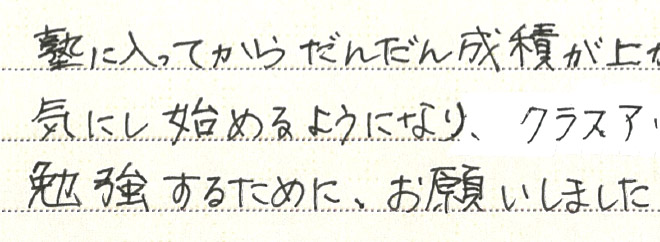 塾に入ってからだんだん成積が上が
気にし始めるようになり、クラスア
勉強するために、お願いしました